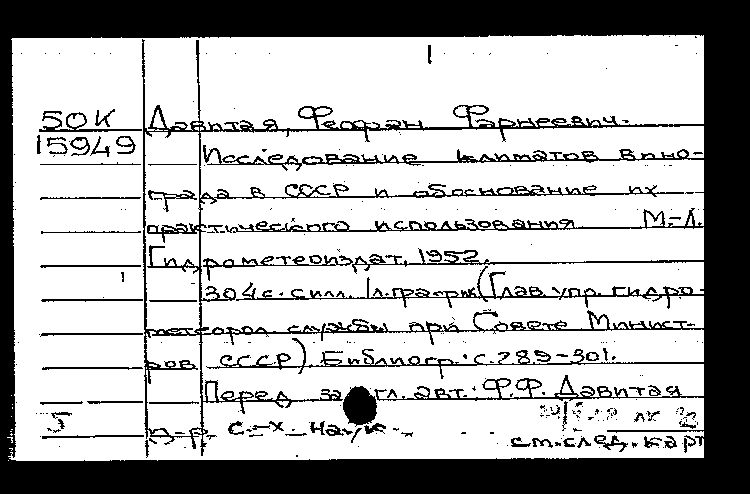 50К Давитая, Феофан Фарнеевич.
15949 Исследование климатов вино-
града в СССР и обоснование их
практического использования М.-Л.
Гидрометеоиздат, 1952.
304с. с илл. 1 л. график (Глав. упр. гидро-
метеорол. службы при Совете Минист-
ров СССР). Библиогр.: с. 289-301.
Перед загл. авт.: Ф.Ф. Давитая
5 д-р. с.-х. наук.
см. след. карт